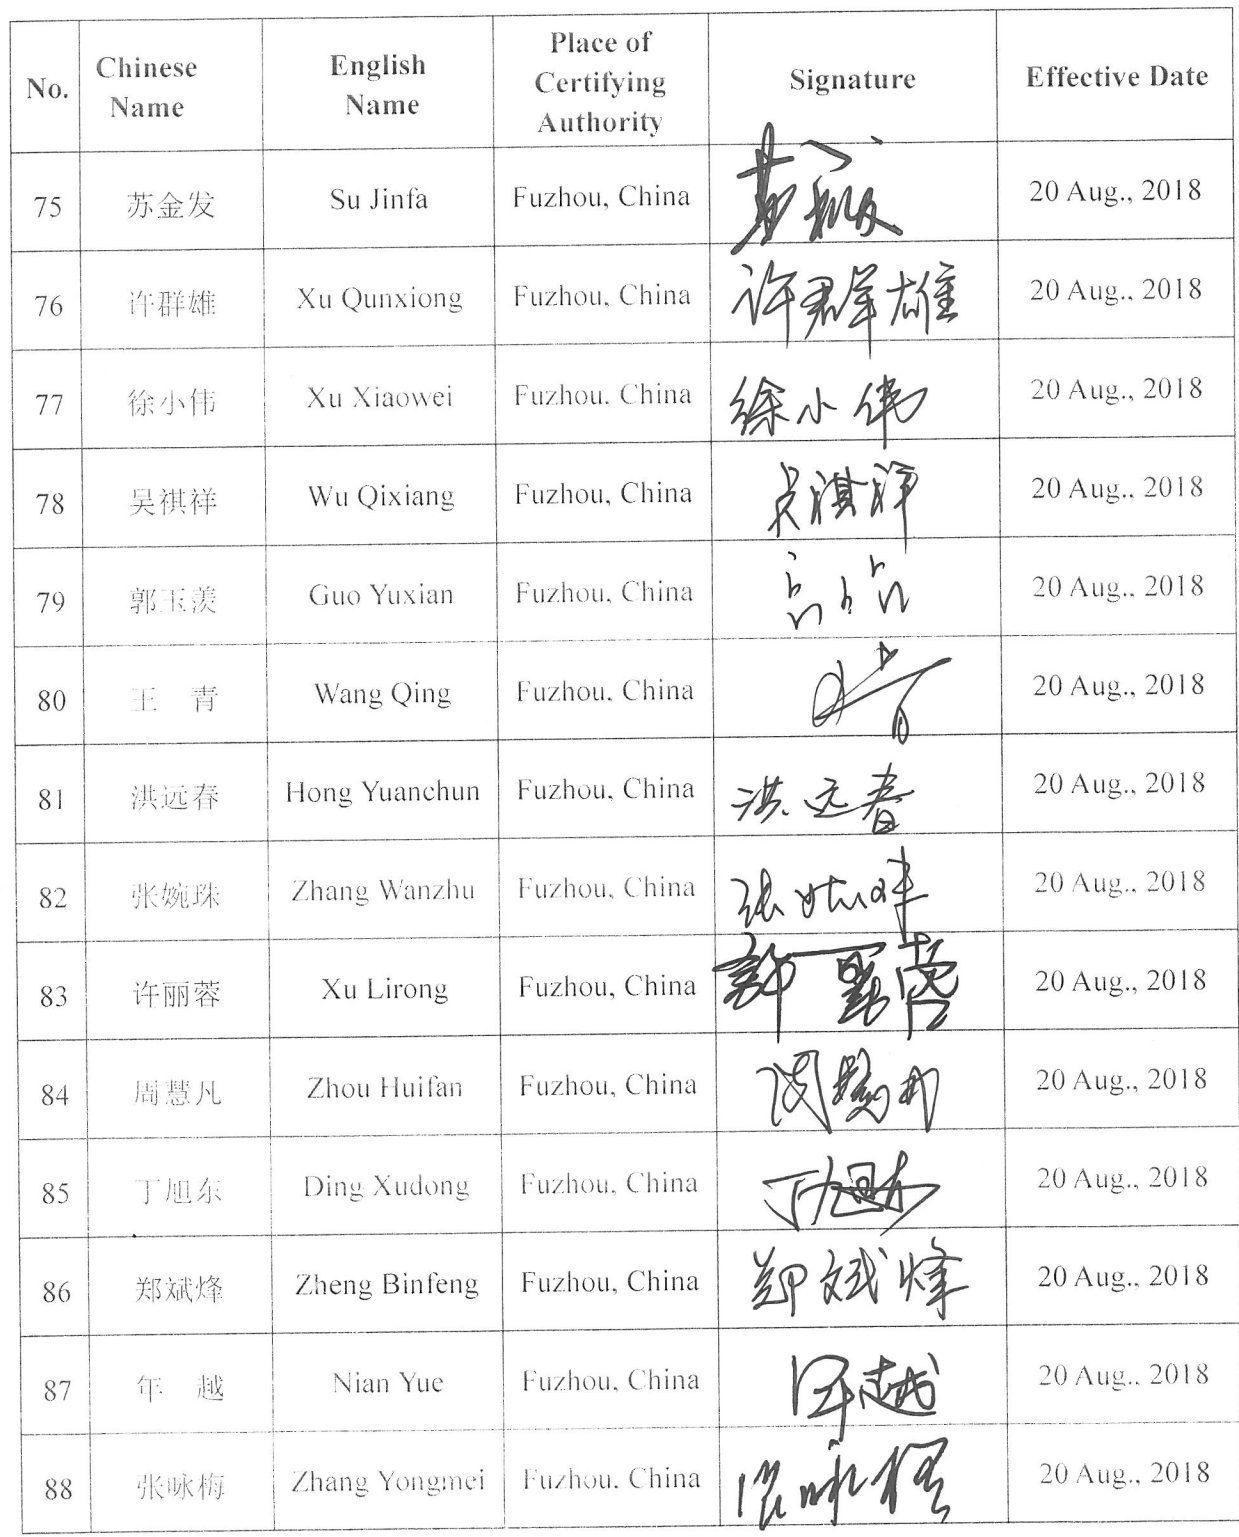 No. Chinese Name English Name Place of Certifying Authority Signature Effective Date
75 苏金发 Su Jinfa Fuzhou, China 20 Aug., 2018
76 许群雄 Xu Qunxiong Fuzhou, China 许群雄 20 Aug., 2018
77 徐小伟 Xu Xiaowei Fuzhou, China 徐小伟 20 Aug., 2018
78 吴祺祥 Wu Qixiang Fuzhou, China 吴祺祥 20 Aug., 2018
79 郭玉羡 Guo Yuxian Fuzhou, China 20 Aug., 2018
80 王 青 Wang Qing Fuzhou, China 20 Aug., 2018
81 洪远春 Hong Yuanchun Fuzhou, China 洪远春 20 Aug., 2018
82 张婉珠 Zhang Wanzhu Fuzhou, China 张婉珠 20 Aug., 2018
83 许丽蓉 Xu Lirong Fuzhou, China 許麗蓉 20 Aug., 2018
84 周慧凡 Zhou Huifan Fuzhou, China 周慧凡 20 Aug., 2018
85 丁旭东 Ding Xudong Fuzhou, China 丁旭东 20 Aug., 2018
86 郑斌烽 Zheng Binfeng Fuzhou, China 郑斌烽 20 Aug., 2018
87 年 越 Nian Yue Fuzhou, China 年越 20 Aug., 2018
88 张咏梅 Zhang Yongmei Fuzhou, China 张咏梅 20 Aug., 2018